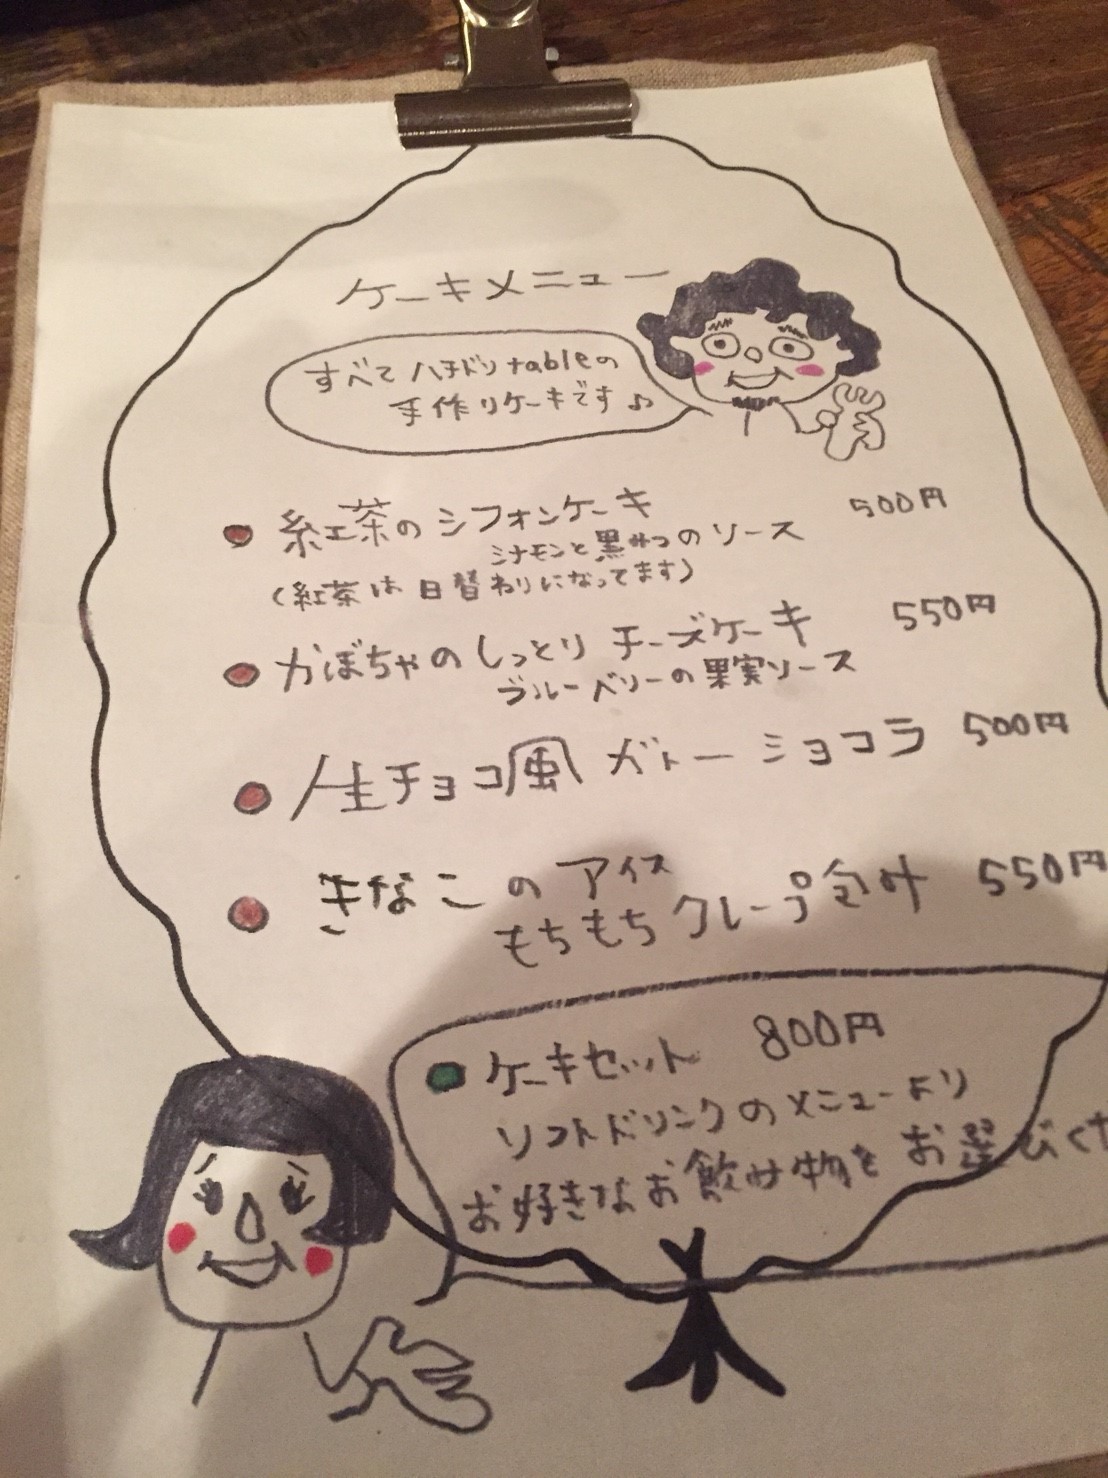 ケーキメニュー
すべてハチドリtableの
手作りケーキです♪
紅茶のシフォンケーキ 500円
シナモンと黒みつのソース
(紅茶は日替わりになってます)
かぼちゃのしっとりチーズケーキ 550円
ブルーベリーの果実ソース
生チョコ風ガトーショコラ 500円
きなこのアイス
もちもちクレープ包み 550円
ケーキセット 800円
ソフトドリンクのメニューより
お好きなお飲み物をお選びくだ